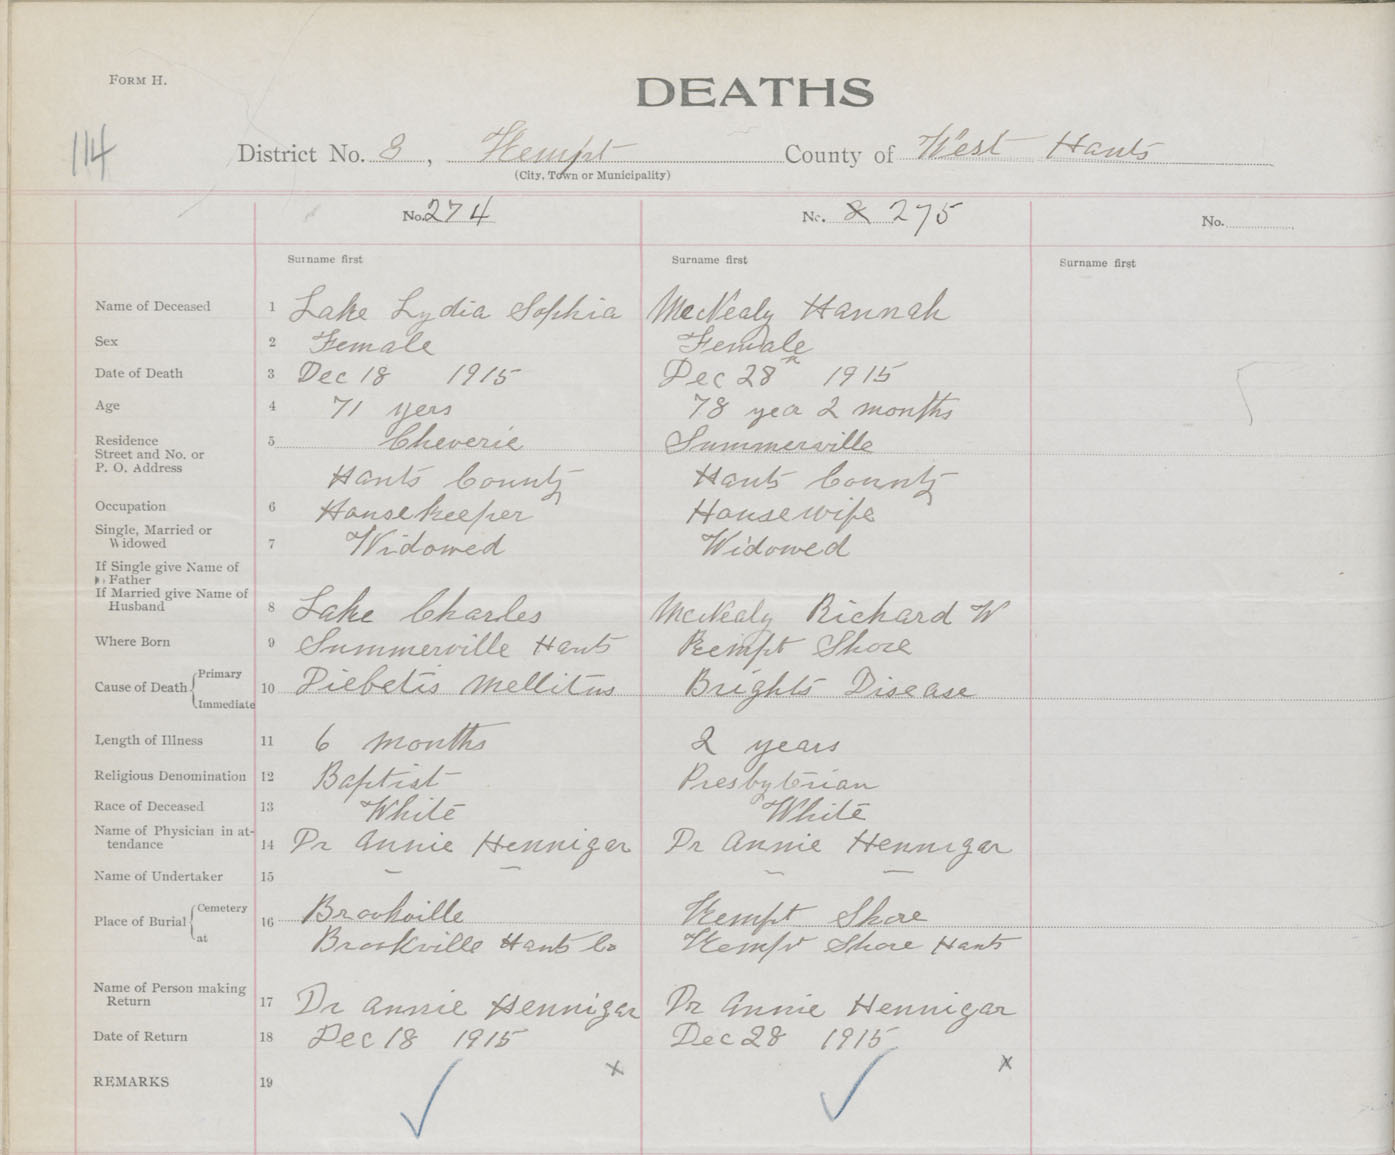 FORM H.
DEATHS
114
District No. 8, Kempt County of West Hants
(City, Town or Municipality)
No. 274 No. 8 275 No.
Surname first Surname first Surname first
Name of Deceased 1 Lake Lydia Sophia McNealy Hannah
Sex 2 Female Female
Date of Death 3 Dec 18 1915 Dec 28th 1915
Age 4 71 yers 78 year 2 months
Residence
Street and No. or
P. O. Address
5 Cheverie Summerville
Hants County Hants County
Occupation 6 Housekeeper Housewife
Single, Married or
Widowed 7 Widowed Widowed
If Single give Name of
Father
If Married give Name of
Husband 8 Lake Charles McNealy Richard W
Where Born 9 Summerville Hants Kempt Shore
Cause of Death Primary
Immediate
10 Diebetis Mellitus Brights Disease
Length of Illness 11 6 months 2 years
Religious Denomination 12 Baptist Presbyterian
Race of Deceased 13 White White
Name of Physician in at-
tendance 14 Dr Annie Hennigar Dr Annie Hennigar
Name of Undertaker 15 — — — —
Place of Burial Cemetery
at
16 Brookville Kempt Shore
Brookville Hants Co Kempt Shore Hants
Name of Person making
Return 17 Dr Annie Hennigar Dr Annie Hennigar
Date of Return 18 Dec 18 1915 Dec 28 1915
x x
REMARKS 19